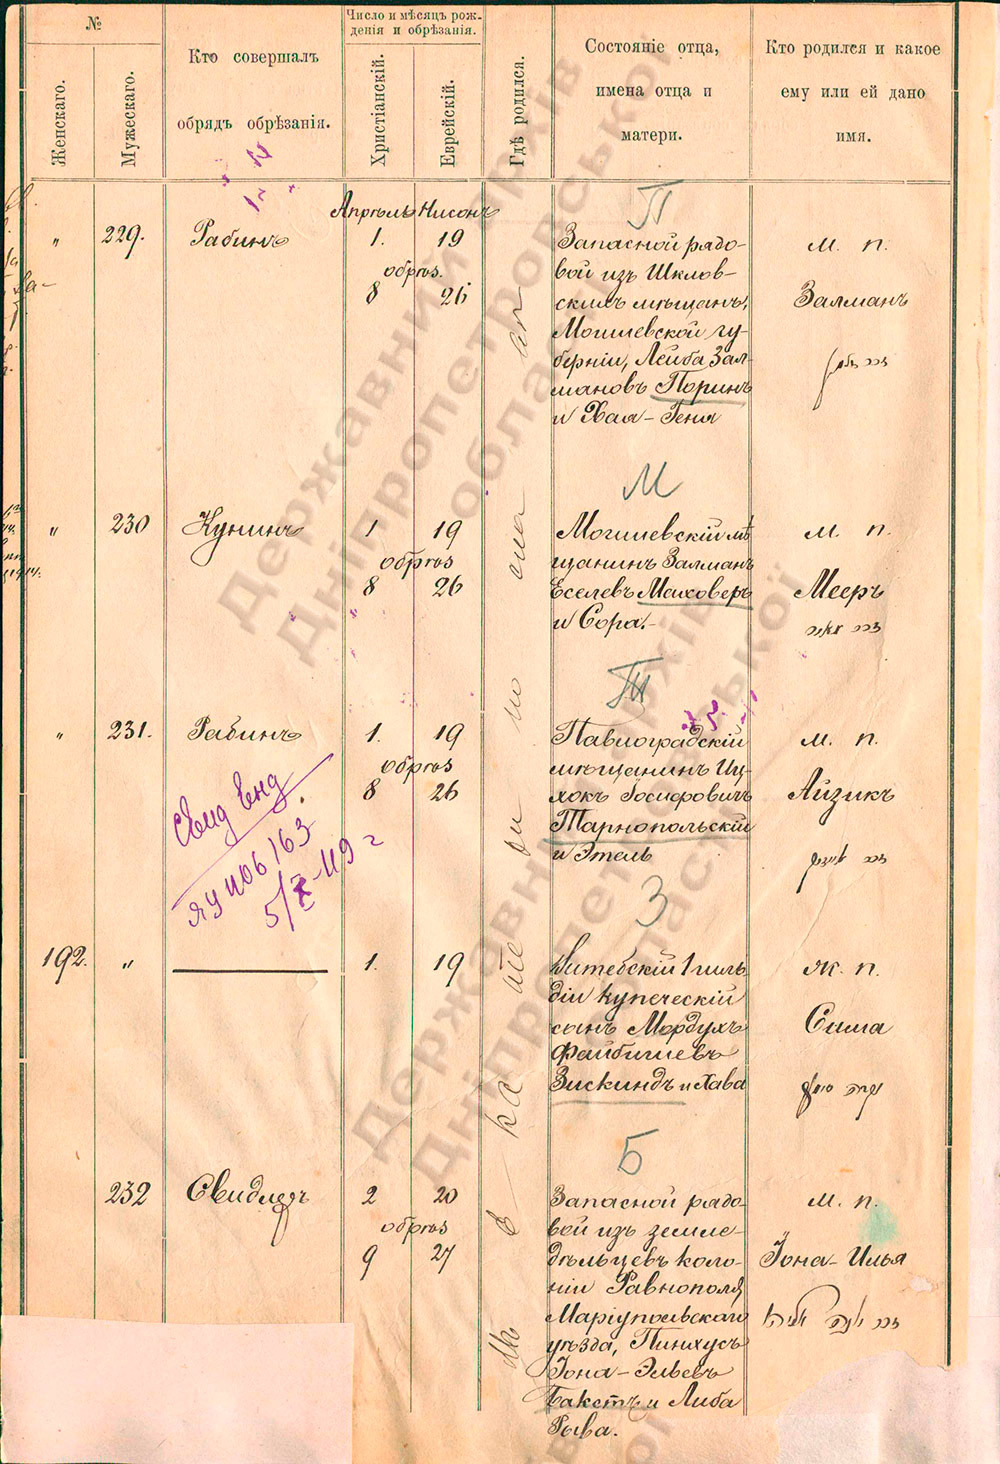 №
Женскаго.
Мужескаго.
Кто совершалъ
обрядъ обрѣзанія.
Число и мѣсяцъ рож-
денія и обрѣзанія.
Христіанскій.
Еврейскій.
Гдѣ родился.
Состояніе отца,
имена отца и
матери.
Кто родился и какое
ему или ей дано
имя.
Апрѣль Нисонъ
П
" 229. Рабинъ 1. 19
обрѣз.
8 26
Запасной рядо-
вой изъ Шклов-
скихъ мѣщанъ,
Могилевской гу-
берніи, Лейба Зал-
мановъ Поринъ
и Хая-Геня
м. п.
Залманъ
זכר זלמן
М
" 230 Кунинъ 1 19
обрѣз
8 26
Могилевскій мѣ
щанинъ Залманъ
Еселевъ Маховеръ
и Сора.-
м. п.
Мееръ
זכר מאיר
Т
" 231. Рабинъ 1. 19
обрѣз
8 26
Павлоградскій
мѣщанинъ Иц-
хокъ Іосифовичъ
Тарнопольскій
и Этель
м. п.
Айзикъ
זכר אייזיק
Свид Енд
ЯУ 406163
З
192. " 1. 19
Витебскій 1 гиль
діи купеческій
сынъ Мордухъ
Файбишевъ
Зискиндъ и Хава
ж. п.
Сима
נקבה סימא
Б
232 Свидлеръ 2 20
обрѣз
9 27
Запасной рядо-
вой изъ земле-
дѣльцевъ коло-
ніи Равнополя,
Маріупольскаго
уѣзда, Пинхусъ
Іона-Эльевъ
Бакстъ и Либа
Рыва.
м. п.
Іона-Илья
זכר יונה אליהו
Державний архів
Дніпропетровської
області
Державний архів
Дніпропетровської
області